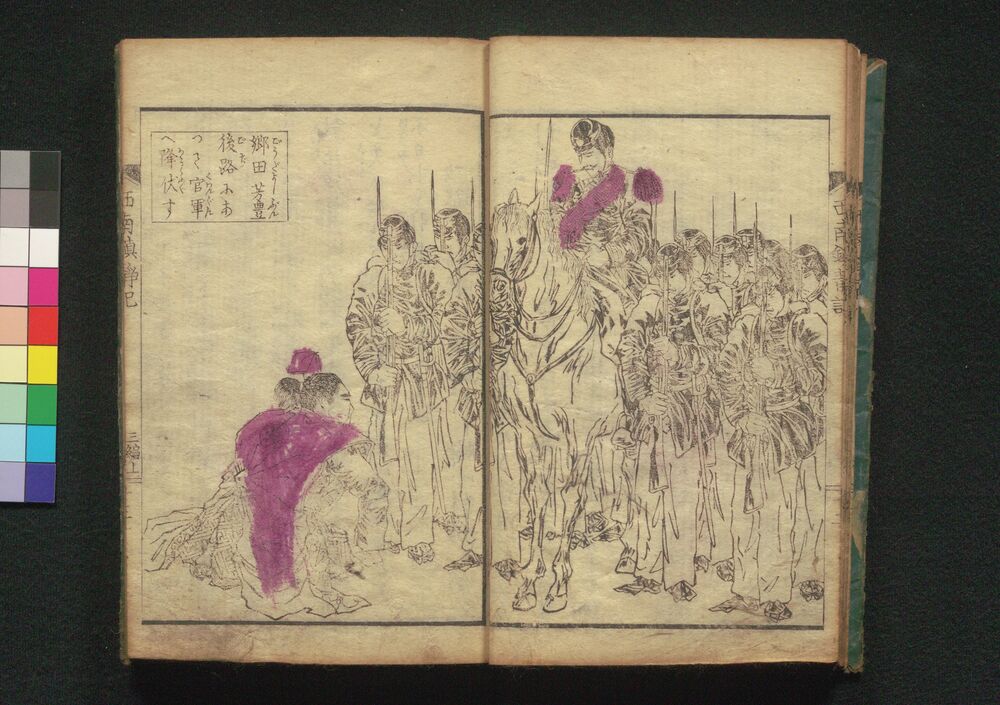 西南鎮静記
郷田芳豊
後路にあ
つて官軍
へ降伏す
西南鎮静記
三編上